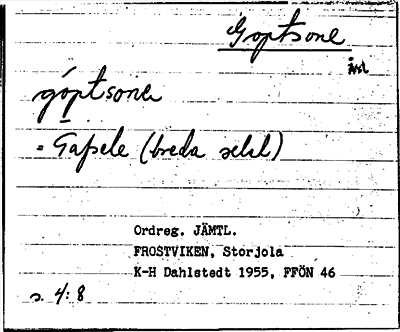 Goptsone
göptsone
= Gafsele (breda selel)
Ordreg. JÄMTL.
FROSTVIKEN, Storjola
K-H Dahlstedt 1955, FFÖN 46
s. 4:8